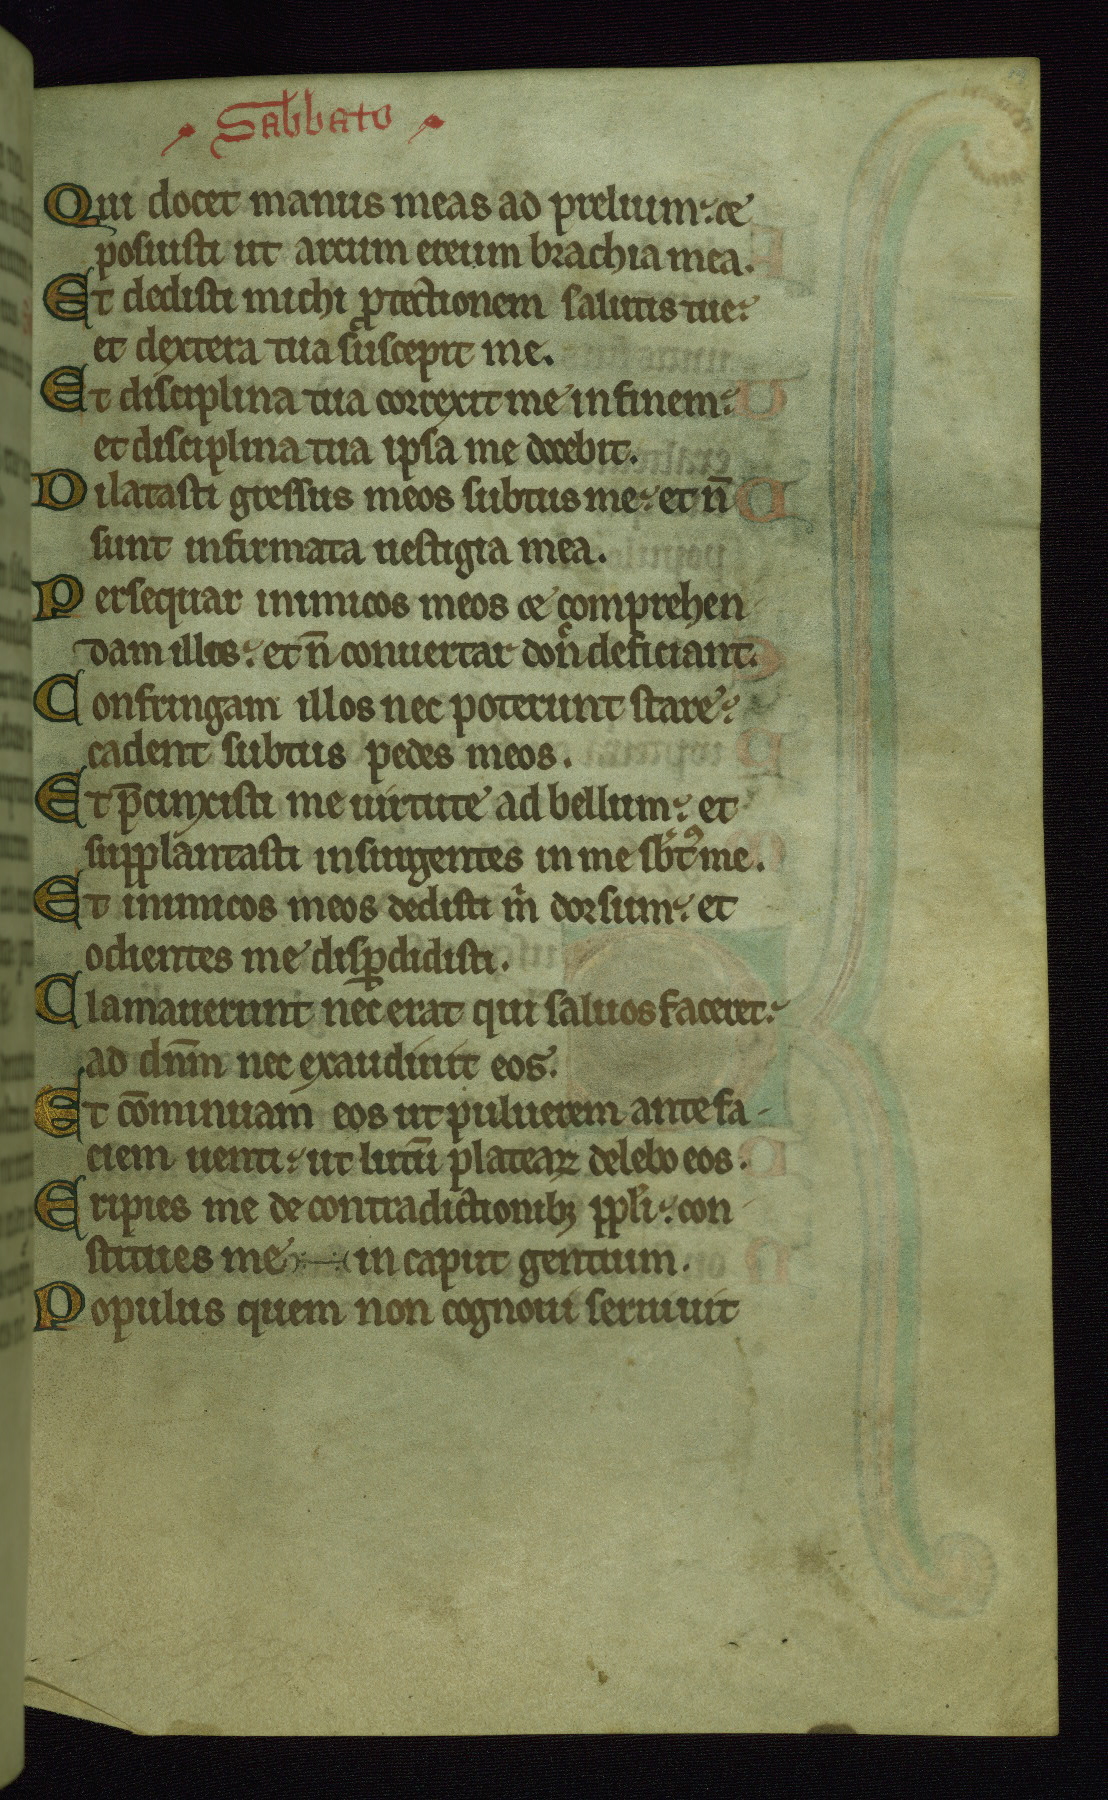 Sabbato
Qui docet manus meas ad prelium: et
posuisti ut arcum ereum brachia mea.
Et dedisti michi ꝓtectionem salutis tue:
et dextera tua suscepit me.
Et disciplina tua correxit me in finem:
et disciplina tua ipsa me docebit.
Dilatasti gressus meos subtus me: et n̄
sunt infirmata uestigia mea.
Persequar inimicos meos et comprehen
dam illos: et n̄ conuertar don̄ deficiant.
Confringam illos nec poterunt stare:
cadent subtus pedes meos.
Et p̄cinxisti me uirtute ad bellum: et
supplantasti insurgentes in me sb̾t᷒ me.
Et inimicos meos dedisti m̄ dorsum: et
odientes me disꝑdidisti.
Clamauerunt nec erat qui saluos faceret:
ad dn̄m nec exaudiuit eos.
Et cōminuam eos ut puluerem ante fa-
ciem uenti: ut lutū plateaꝝ delebo eos.
Eripies me de contradictionibꝫ ppl̓i: con
stitues me in caput gentium.
Populus quem non cognoui seruiuit